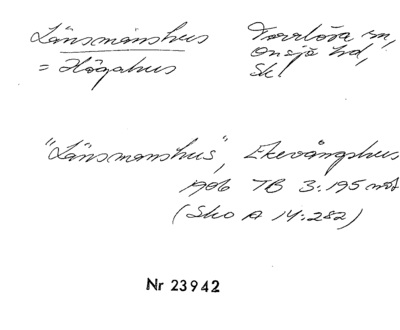 Länsmanshus Torrlösa sn,
Onsjö hd,
= Högahus Sk
"Länsmanshus", Ekevångshus
1906 TB 3:195 not
(Sko A 14:282)
Nr 23942